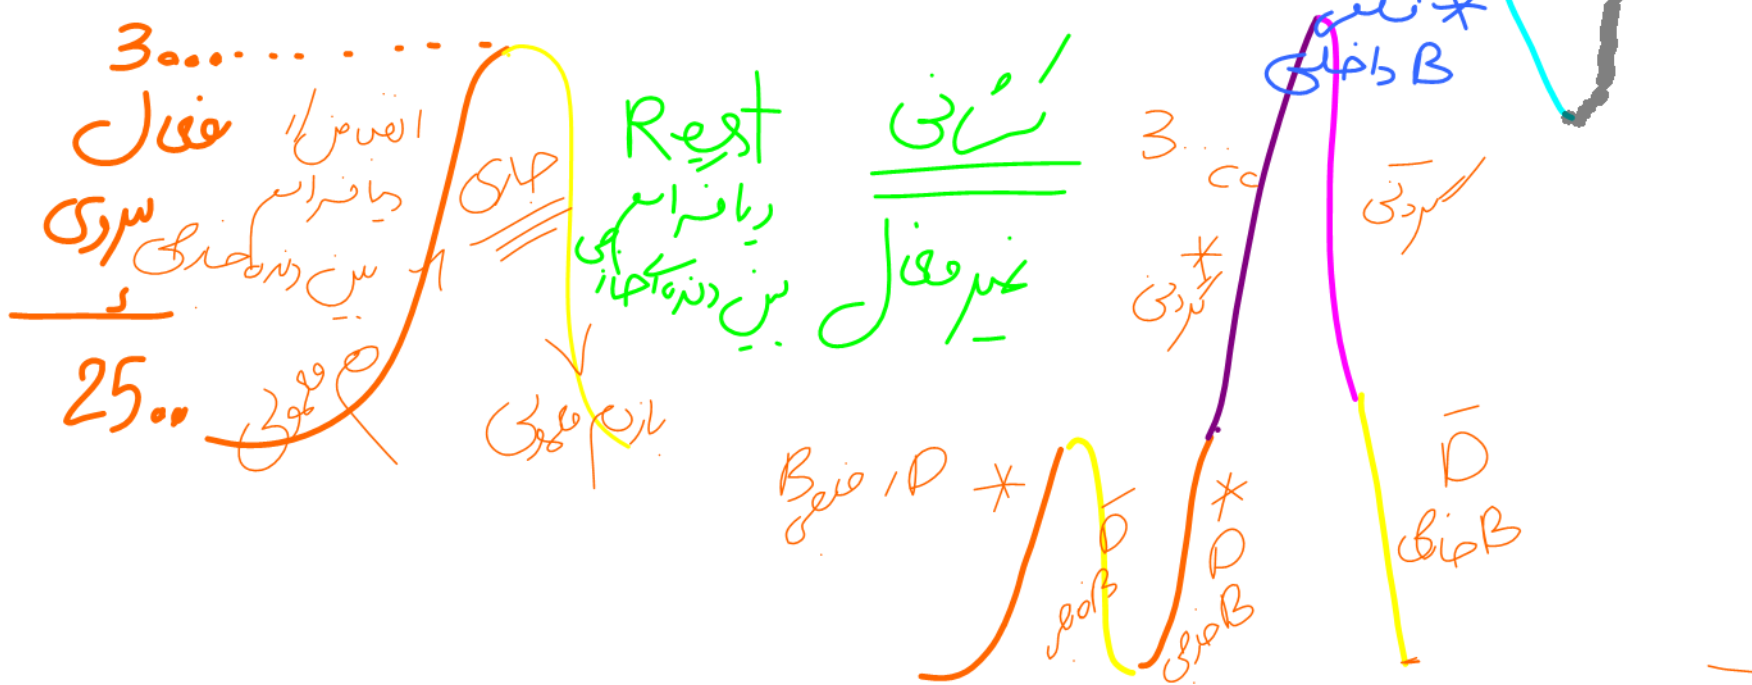 3000
فعال
سروی
2500
انقباض
دیافراگم
بین دنده خارجی
جاری
دم معمولی
بازدم معمولی
Rest
دیافراگم
بین دنده خارجی
کشسانی
غیرفعال
B داخلی
3000
cc
* گردنی
گردنی
B خارجی , D *
D
B خارجی
* D
B خارجی
D
B خارجی